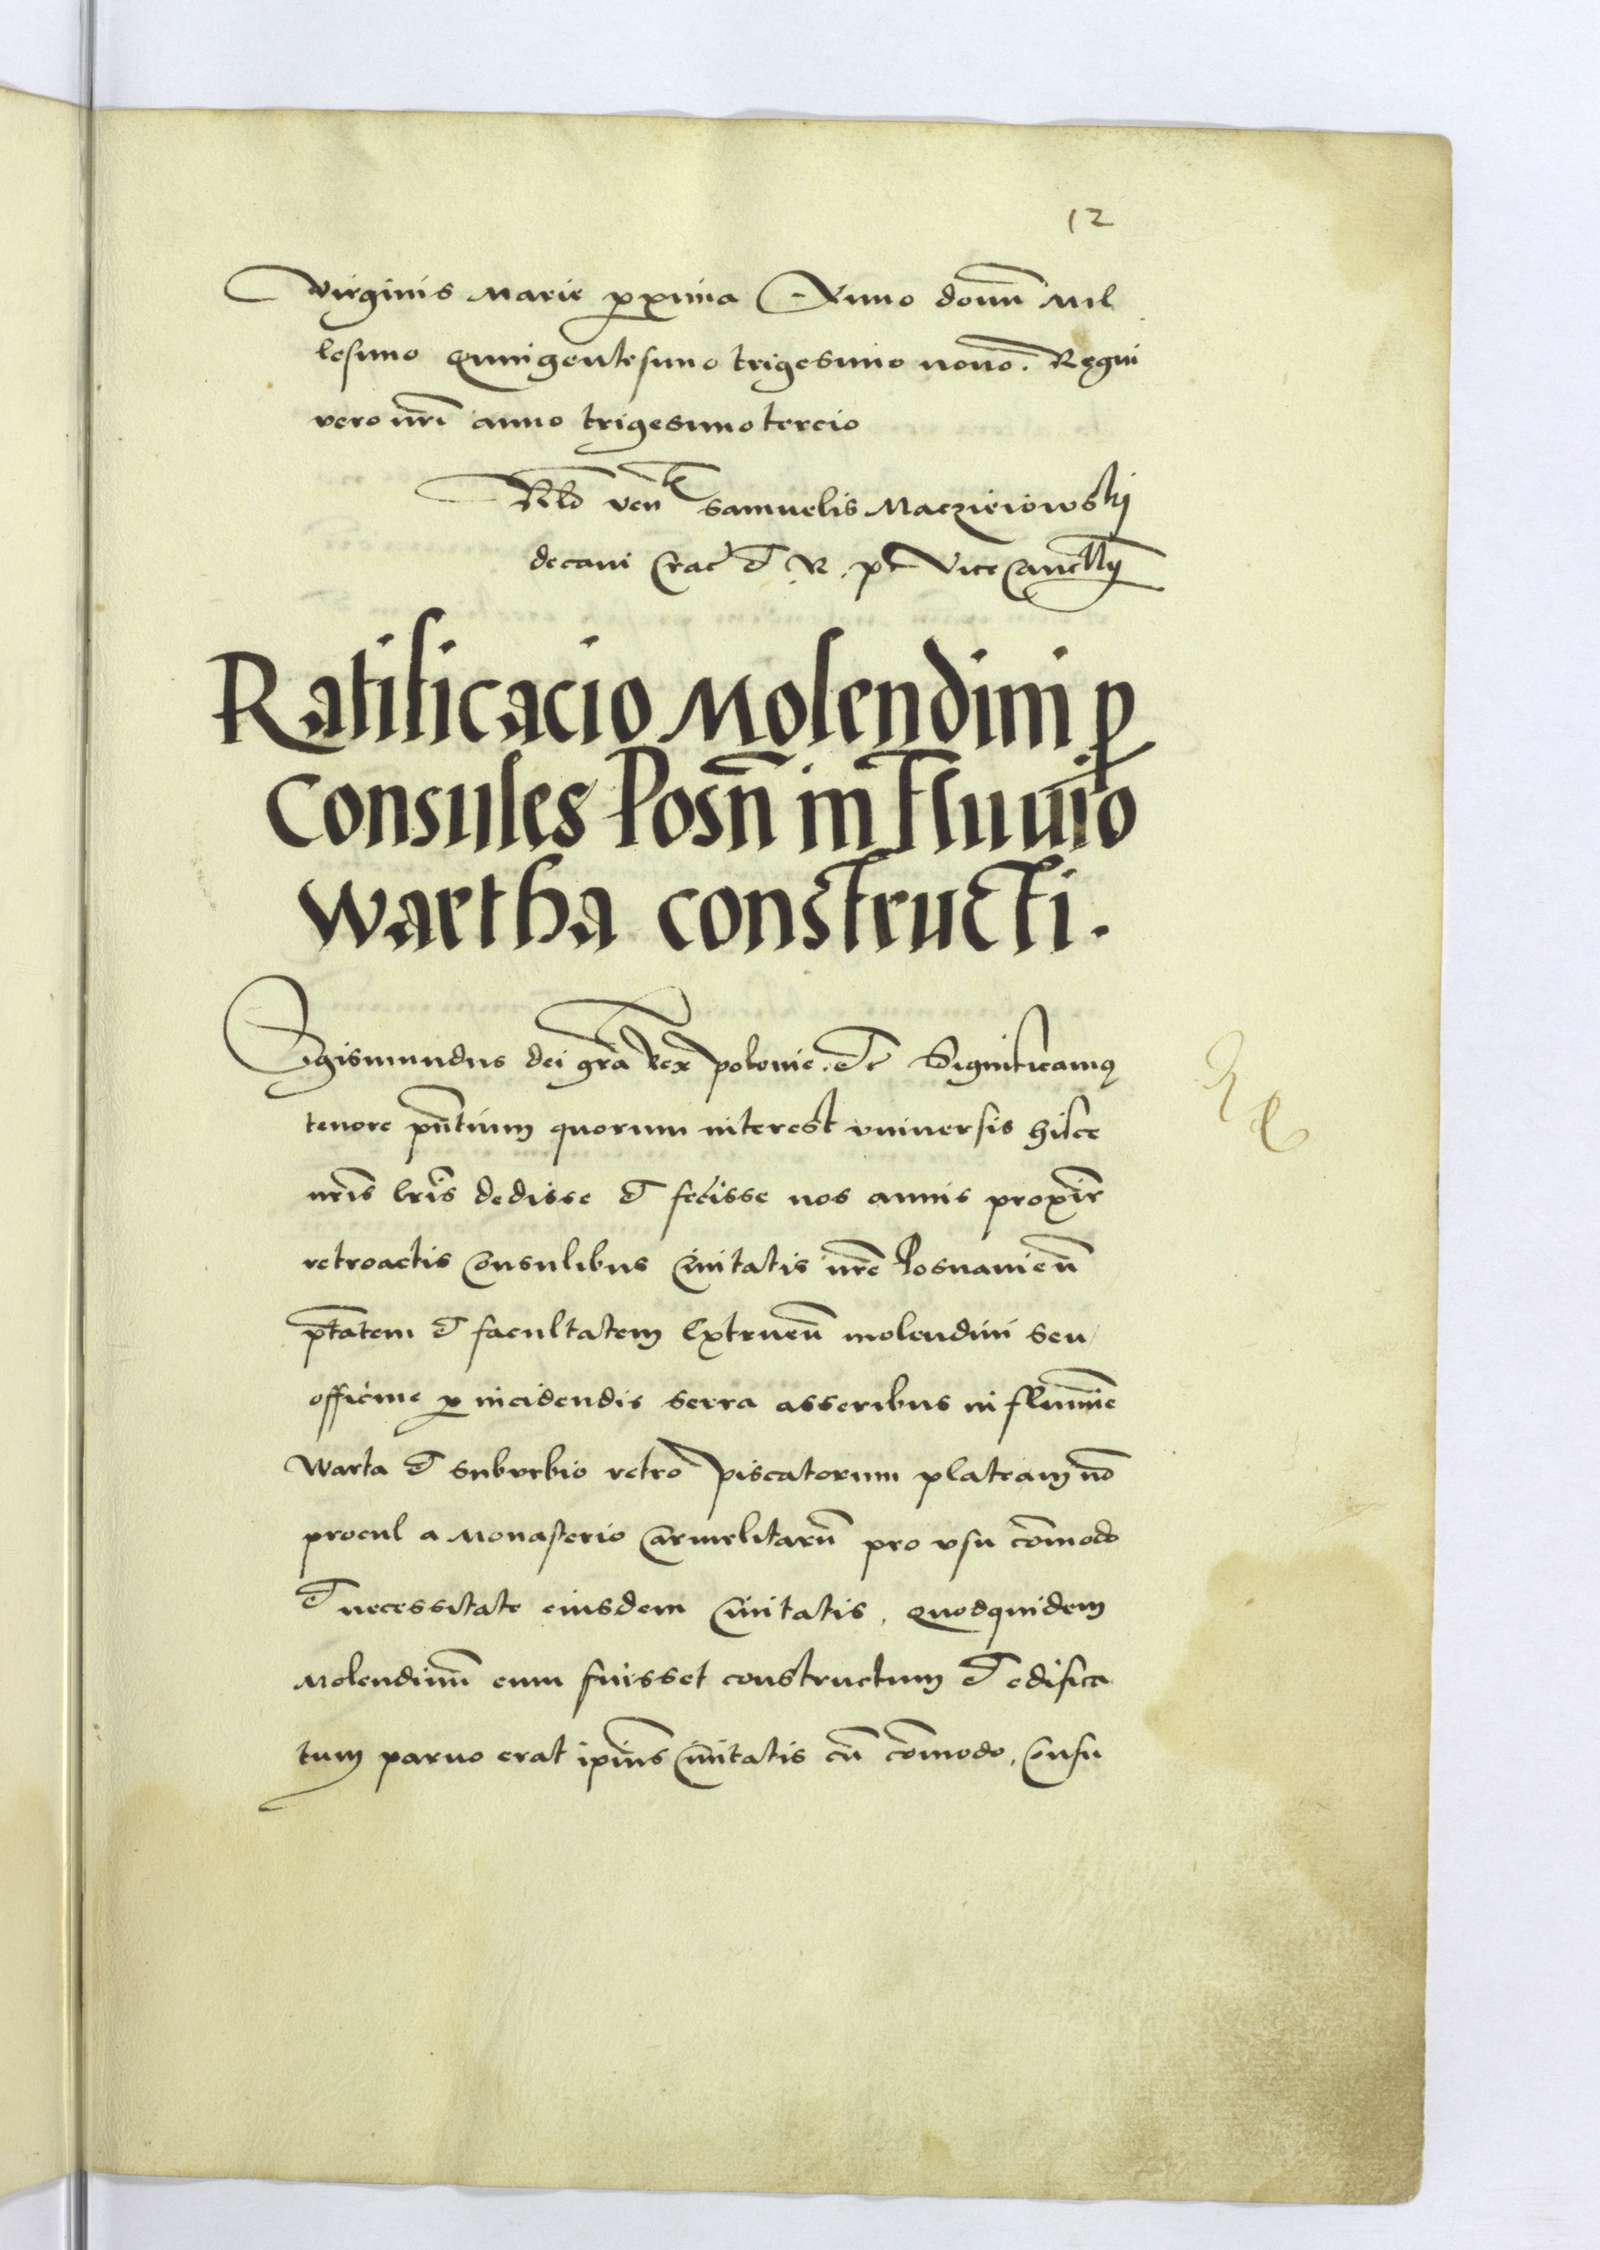 12
Virginis Marie pxima Anno domī Mil
lesimo Quingentesimo trigesimo nono. Regni
vero nrī anno trigesimo tercio
Rlo ven Samuelis Maczieiowskij
decani Crac et R. p. Vicecancllij
Ratificacio Molendini p
Consules Posn̄ in Fluuio
Wartha constructi.
Sigismundus dei grā Rex Polonie. etc Significamus
tenore pn̄tium quorum interest vniuersis hisce
nrīs lrīs dedisse et fecisse nos annis proxīe
retroactis Consulibus Ciuitatis nrē Posnanien̄
ptātem et facultatem Extruen̄ molendini seu
officine p incidendis serra asseribus in flumīe
Warta et suburbio retro piscatorum plateam nō
procul a Monasterio Carmelitarū pro vsu cōmodo
et necessitate eiusdem Ciuitatis, quodquidem
Molendinū cum fuisset constructum et edifica
tum paruo erat ipīus Ciuitatis cū cōmodo, Consu